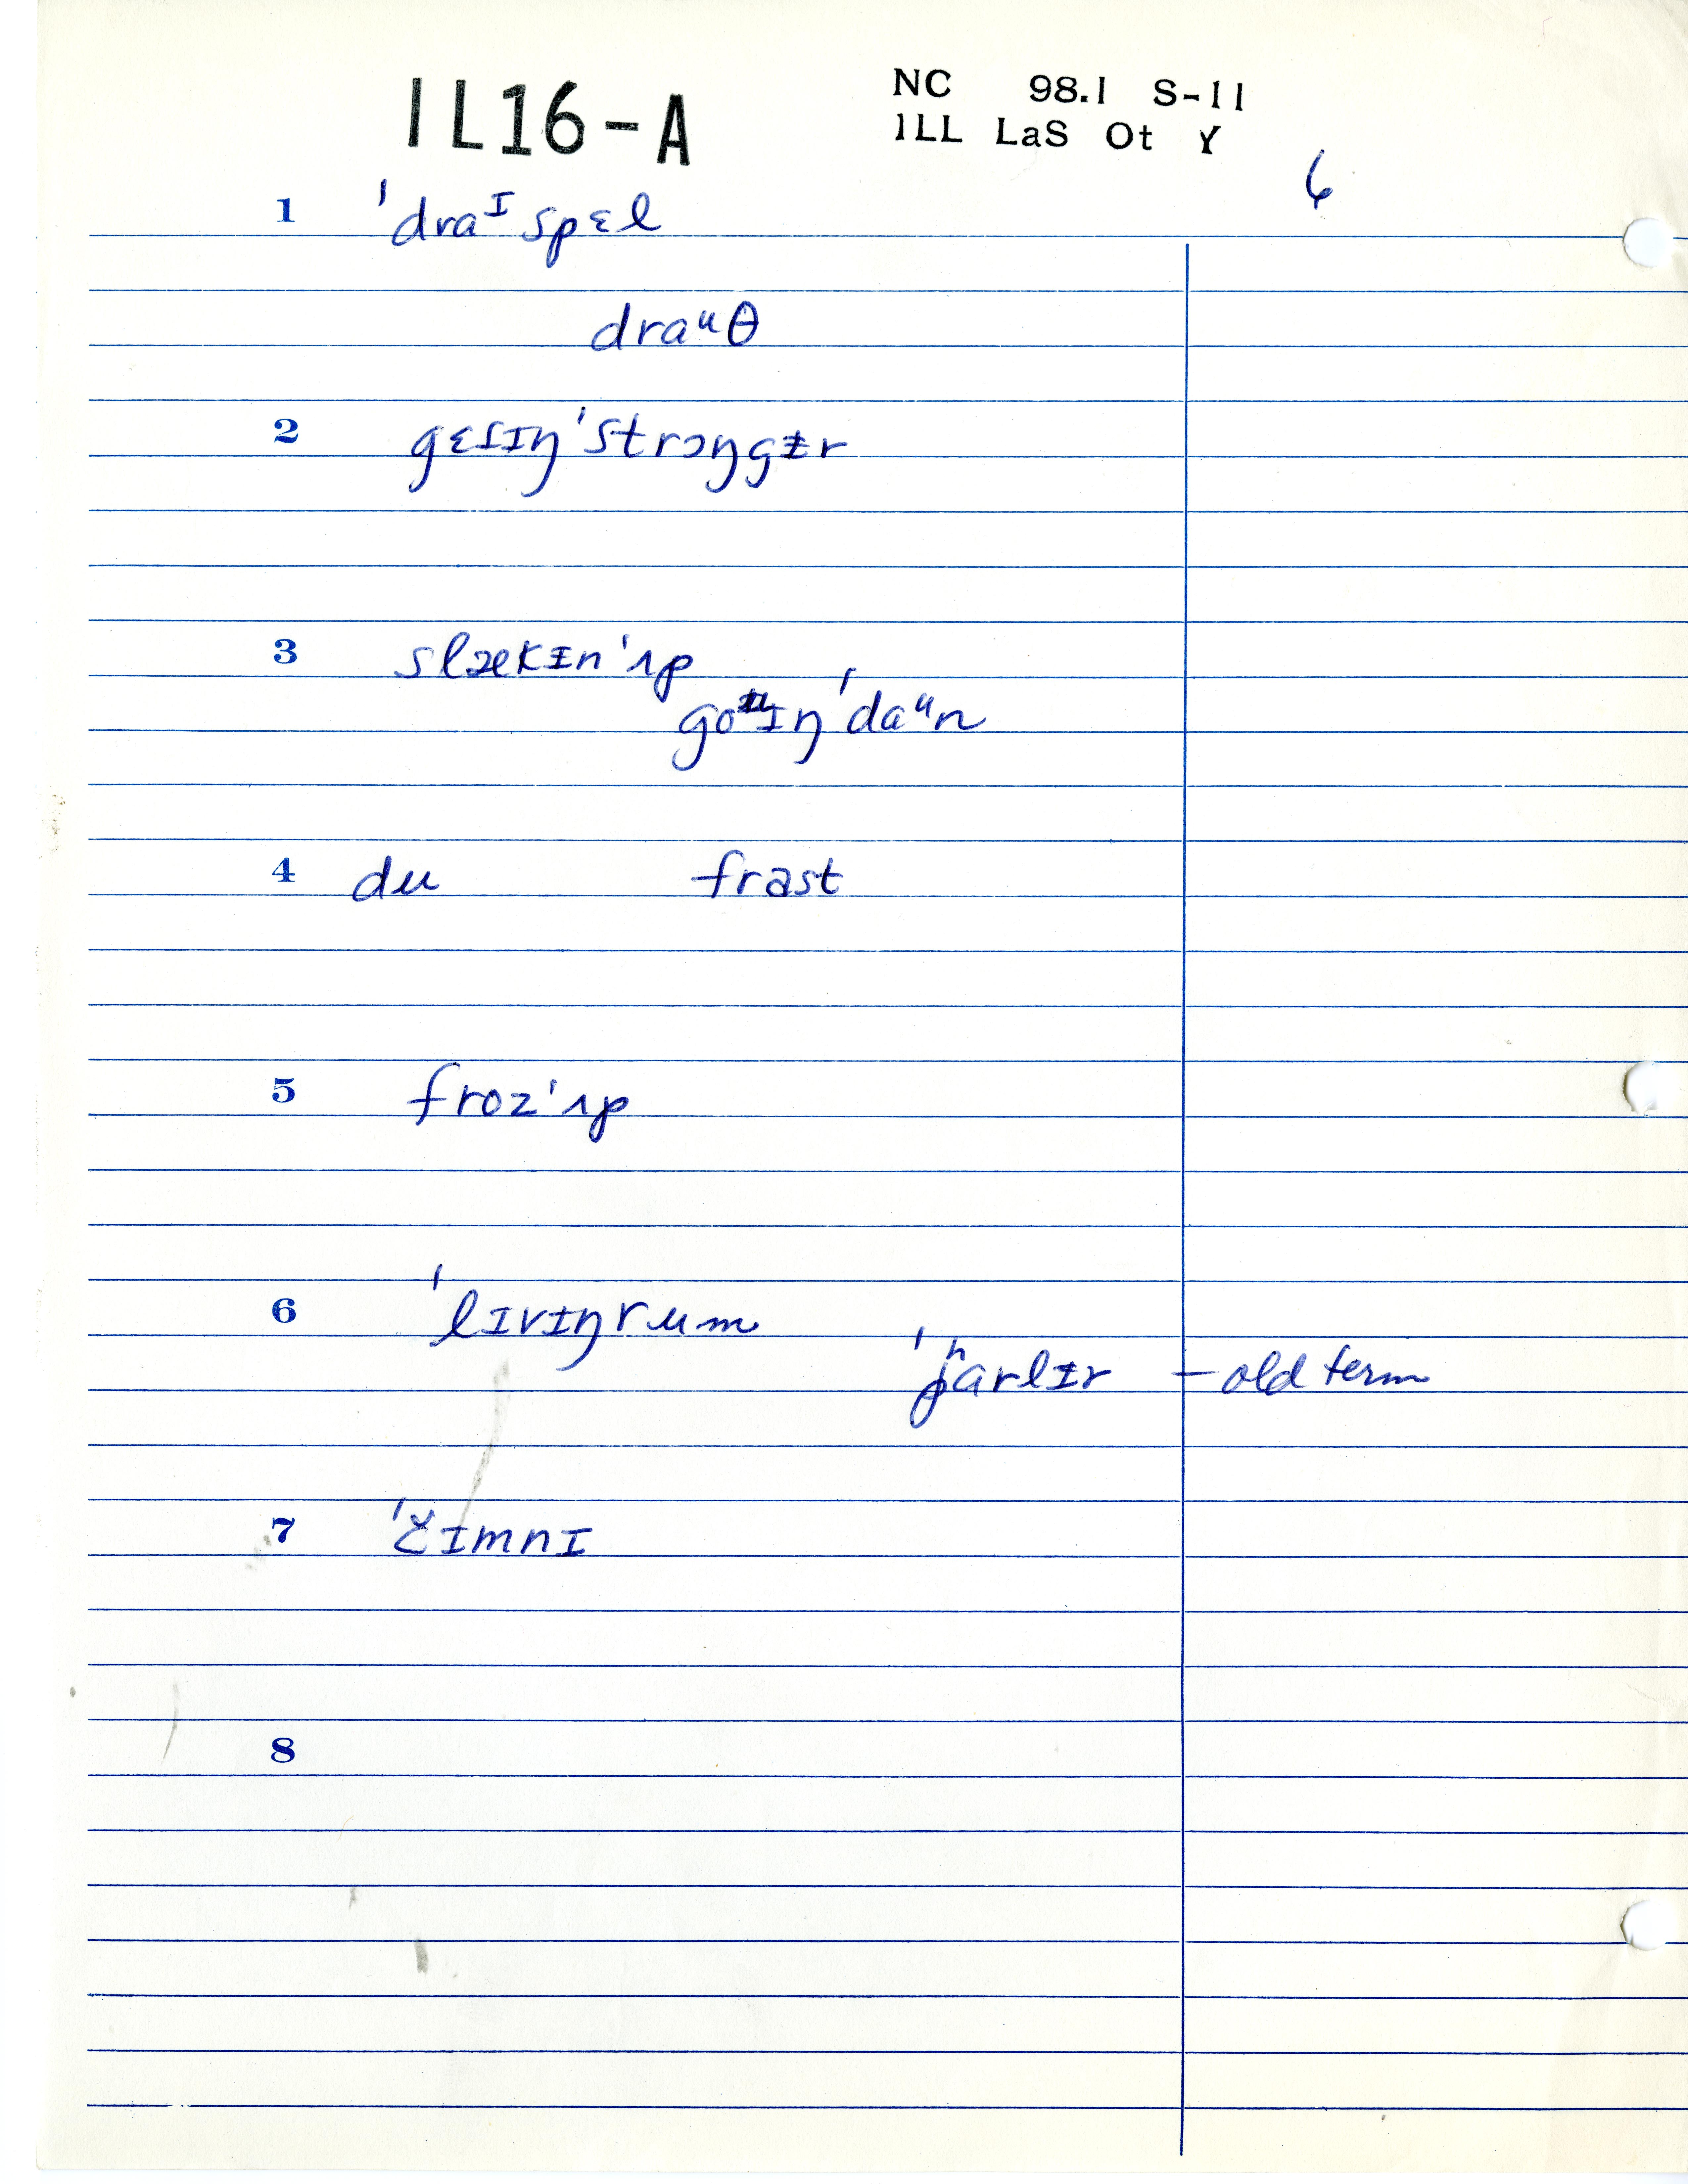 IL16-A
NC 98.1 S-11
ILL LaS Ot Y
6
1 ˈdraᴵspɛl
draᵘθ
2 gɛsɪŋˈstrɔŋgᵻr
3 slækᵻnˈʌp
goᵘɪŋˈdaᵘn
4 du frast
5 frozˈʌp
6 ˈlɪvɪŋrum
ˈpʰarlᵻr – old term
7 ˈčɪmnɪ
8